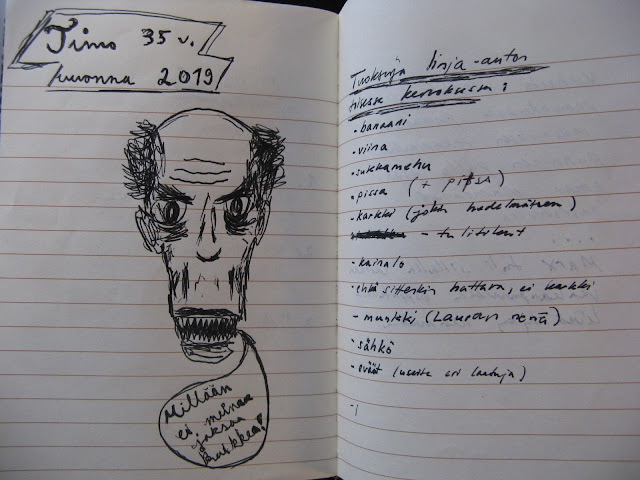 Timo 35 v.
vuonna 2019
Millään
ei meinaa
jaksaa
Tuoksuja linja-auton
toisessa kerroksessa:
- banaani
- viina
- sukkamehu
- pissa (+ pissa)
- karkki (jokin hedelmäinen)
- tulitikut
- kainalo
- ehkä sittenkin hattara, ei karkki
- munkki (Lauran
- sähkö
- eväät (useita eri laatuja)